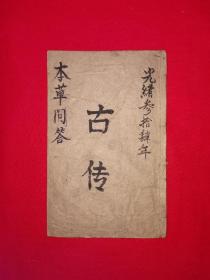 光緒叁拾肆年
古传
本草问答